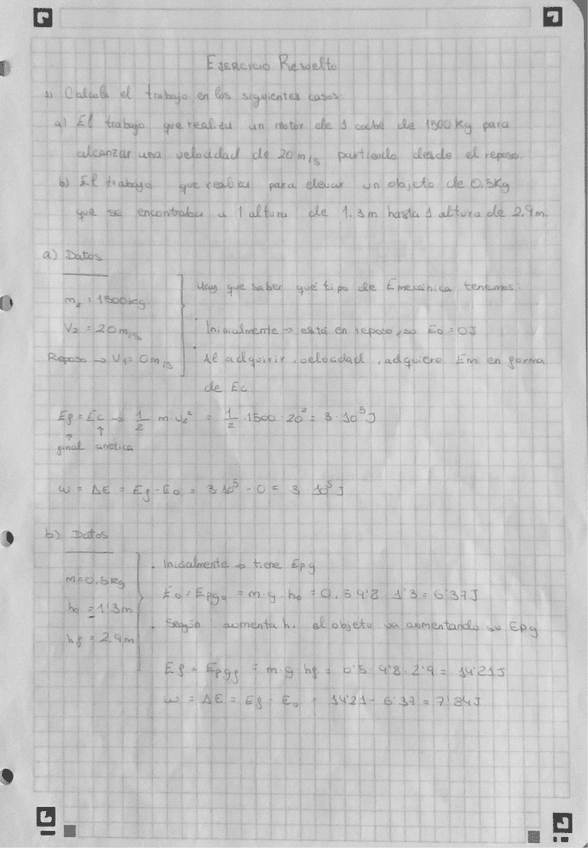 EJERCICIO Resuelto
1) Calcula el trabajo en los siguientes casos:
a) El trabajo que realiza un motor de 1 coche de 1500 kg para
alcanzar una velocidad de 20 m/s partiendo desde el reposo.
b) El trabajo que realiza para elevar un objeto de 0,5 kg
que se encontraba a 1 altura de 1,3 m hasta 1 altura de 2,9 m.
a) Datos
Hay que saber qué tipo de Emecánica tenemos:
m = 1500 kg
V₂ = 20 m/s
· Inicialmente → está en reposo, → E₀ = 0 J
Reposo → V₁ = 0 m/s
· Al adquirir velocidad, adquiere Em en forma
de Ec
Ef = Ec → 1/2 m v₂² = 1/2 · 1500 · 20² = 3 · 10⁵ J
↑ ↑
final cinética
W = ΔE = Ef - E₀ = 3 · 10⁵ - 0 = 3 · 10⁵ J
b) Datos
· Inicialmente → tiene Epg
m = 0,5 kg
E₀ = Epg₀ = m · g · h₀ = 0,5 · 9'8 · 1'3 = 6'37 J
h₀ = 1'3 m
· Según aumenta h, el objeto va aumentando su Epg
hf = 2,9 m
Ef = Epgf = m · g · hf = 0'5 · 9'8 · 2'9 = 14'21 J
W = ΔE = Ef - E₀ = 14'21 - 6'37 = 7'84 J